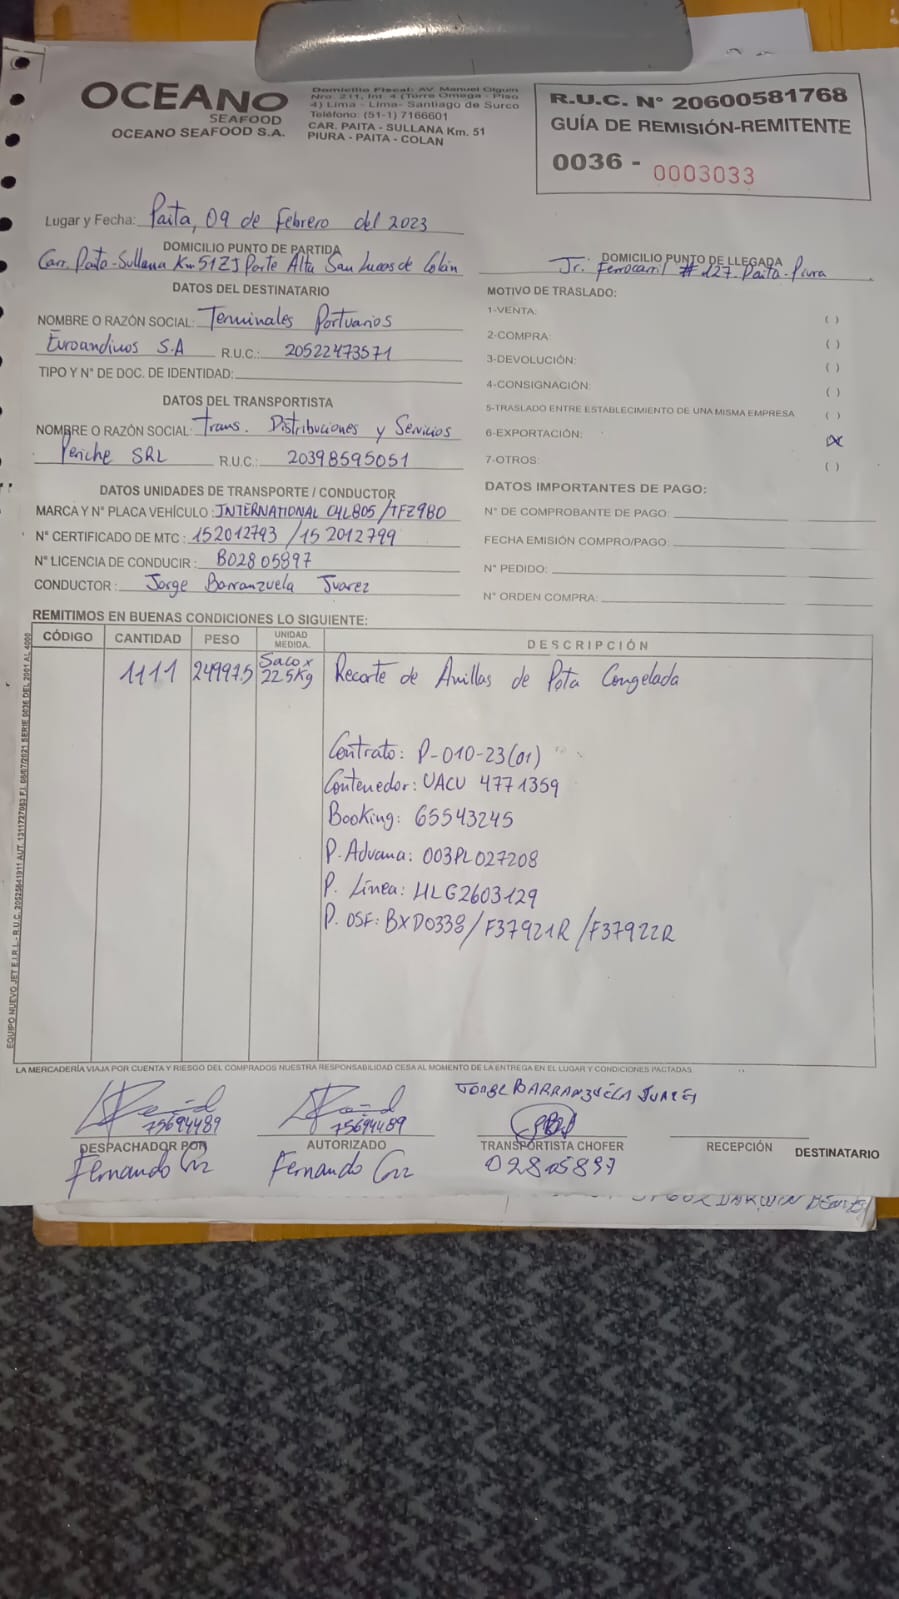 OCEANO
SEAFOOD
OCEANO SEAFOOD S.A.
Domicilio Fiscal: AV. Manuel Olguin
Nro. 211, Int. 4 (Torre Omega - Piso
4) Lima - Lima- Santiago de Surco
Teléfono: (51-1) 7166601
CAR. PAITA - SULLANA Km. 51
PIURA - PAITA - COLAN
R.U.C. N° 20600581768
GUÍA DE REMISIÓN-REMITENTE
0036 - 0003033
Lugar y Fecha: Paita, 09 de Febrero del 2023
DOMICILIO PUNTO DE PARTIDA
Carr. Paita-Sullana Km 51 ZI Parte Alta San Lucas de Colán
DOMICILIO PUNTO DE LLEGADA
Jr. Ferrocarril # 127 Paita-Piura
DATOS DEL DESTINATARIO
NOMBRE O RAZÓN SOCIAL: Terminales Portuarios
Euroandinos S.A R.U.C.: 20522473571
TIPO Y N° DE DOC. DE IDENTIDAD:
DATOS DEL TRANSPORTISTA
NOMBRE O RAZÓN SOCIAL: Trans. Distribuciones y Servicios
Periche SRL R.U.C.: 20398595051
DATOS UNIDADES DE TRANSPORTE / CONDUCTOR
MARCA Y N° PLACA VEHÍCULO: INTERNATIONAL /TFZ980
N° CERTIFICADO DE MTC: 152012793 / 15 2012799
N° LICENCIA DE CONDUCIR: B02805897
CONDUCTOR: Jorge Barranzuela Juarez
MOTIVO DE TRASLADO:
1-VENTA: ( )
2-COMPRA: ( )
3-DEVOLUCIÓN: ( )
4-CONSIGNACIÓN: ( )
5-TRASLADO ENTRE ESTABLECIMIENTO DE UNA MISMA EMPRESA ( )
6-EXPORTACIÓN: (X)
7-OTROS: ( )
DATOS IMPORTANTES DE PAGO:
N° DE COMPROBANTE DE PAGO:
FECHA EMISIÓN COMPRO/PAGO:
N° PEDIDO:
N° ORDEN COMPRA:
REMITIMOS EN BUENAS CONDICIONES LO SIGUIENTE:
CÓDIGO CANTIDAD PESO UNIDAD MEDIDA. DESCRIPCIÓN
1111 24997.5 Saco x 22.5Kg Recorte de Anillas de Pota Congelada
Contrato: P-010-23(01)
Contenedor: UACU 4771359
Booking: 65543245
P. Aduana: 003PL027208
P. Línea: HLG2603129
P. OSF: BXD0338/F37921R/F37922R
EQUIPO NUEVO JET E.I.R.L - R.U.C. 20525841911 AUT. 1311727083 F.I. 08/07/2021 SERIE 0036 DEL 2001 AL 4000
LA MERCADERÍA VIAJA POR CUENTA Y RIESGO DEL COMPRADOS NUESTRA RESPONSABILIDAD CESA AL MOMENTO DE LA ENTREGA EN EL LUGAR Y CONDICIONES PACTADAS.
JORGE BARRANZUELA JUAREZ
75694489
75694489
DESPACHADOR POR
AUTORIZADO
TRANSPORTISTA CHOFER
RECEPCIÓN
DESTINATARIO
Fernando Cruz
Fernando Cruz
02805897